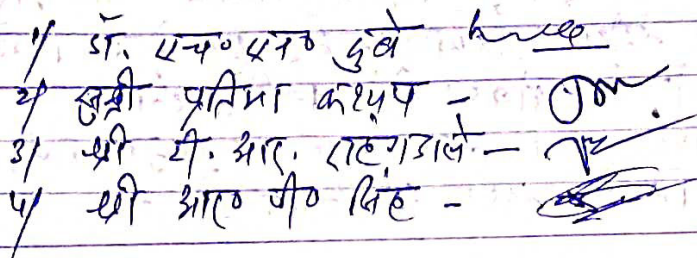 1/ डॉ. एच० एन० दुबे
2/ सुश्री प्रतिमा कश्यप -
3/ श्री टी. आर. राहंगडाले -
4/ श्री आर० पी० सिंह -